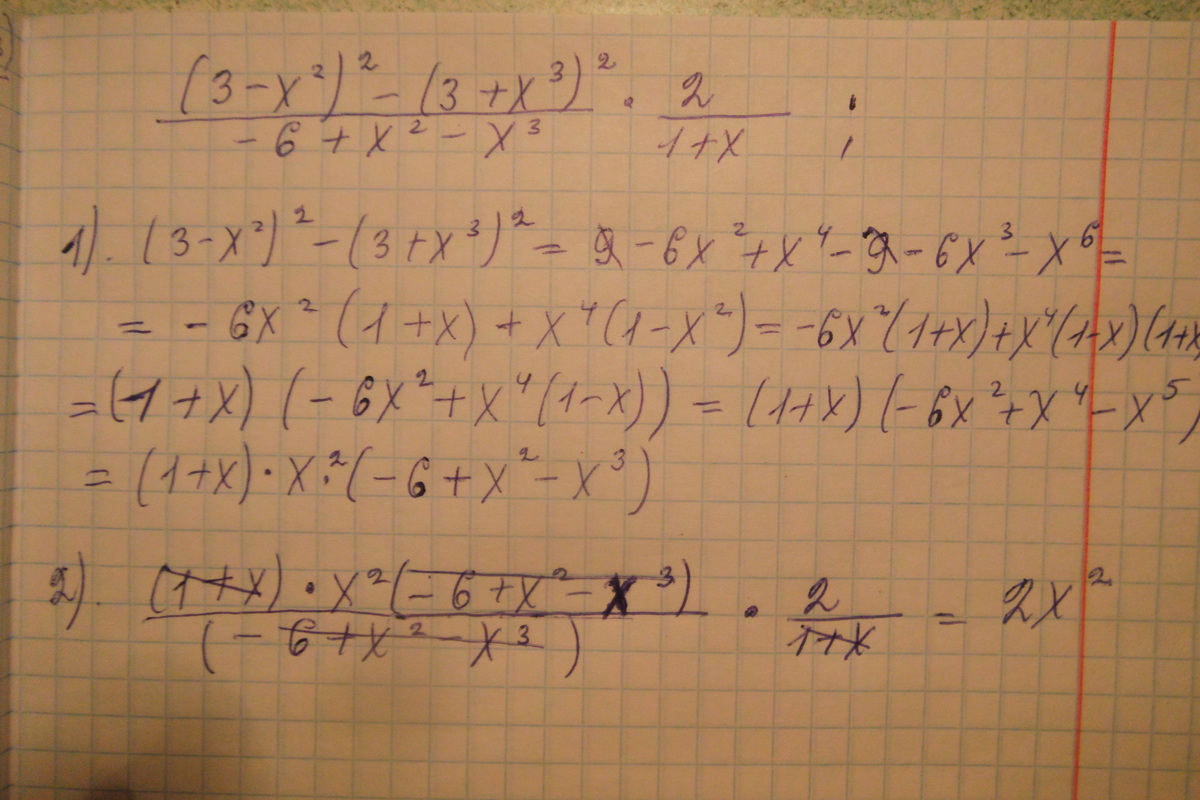 ((3-x²)² - (3+x³)²)/(-6+x²-x³) · 2/(1+x) ;
1). (3-x²)² - (3+x³)² = 9 - 6x² + x⁴ - 9 - 6x³ - x⁶ =
= -6x² (1+x) + x⁴(1-x²) = -6x²(1+x) + x⁴(1-x)(1+x
= (1+x) (-6x² + x⁴(1-x)) = (1+x) (-6x² + x⁴ - x⁵)
= (1+x) · x² · (-6 + x² - x³)
2). ((1+x) · x² (-6+x²-x³))/((-6+x²-x³)) · 2/(1+x) = 2x²